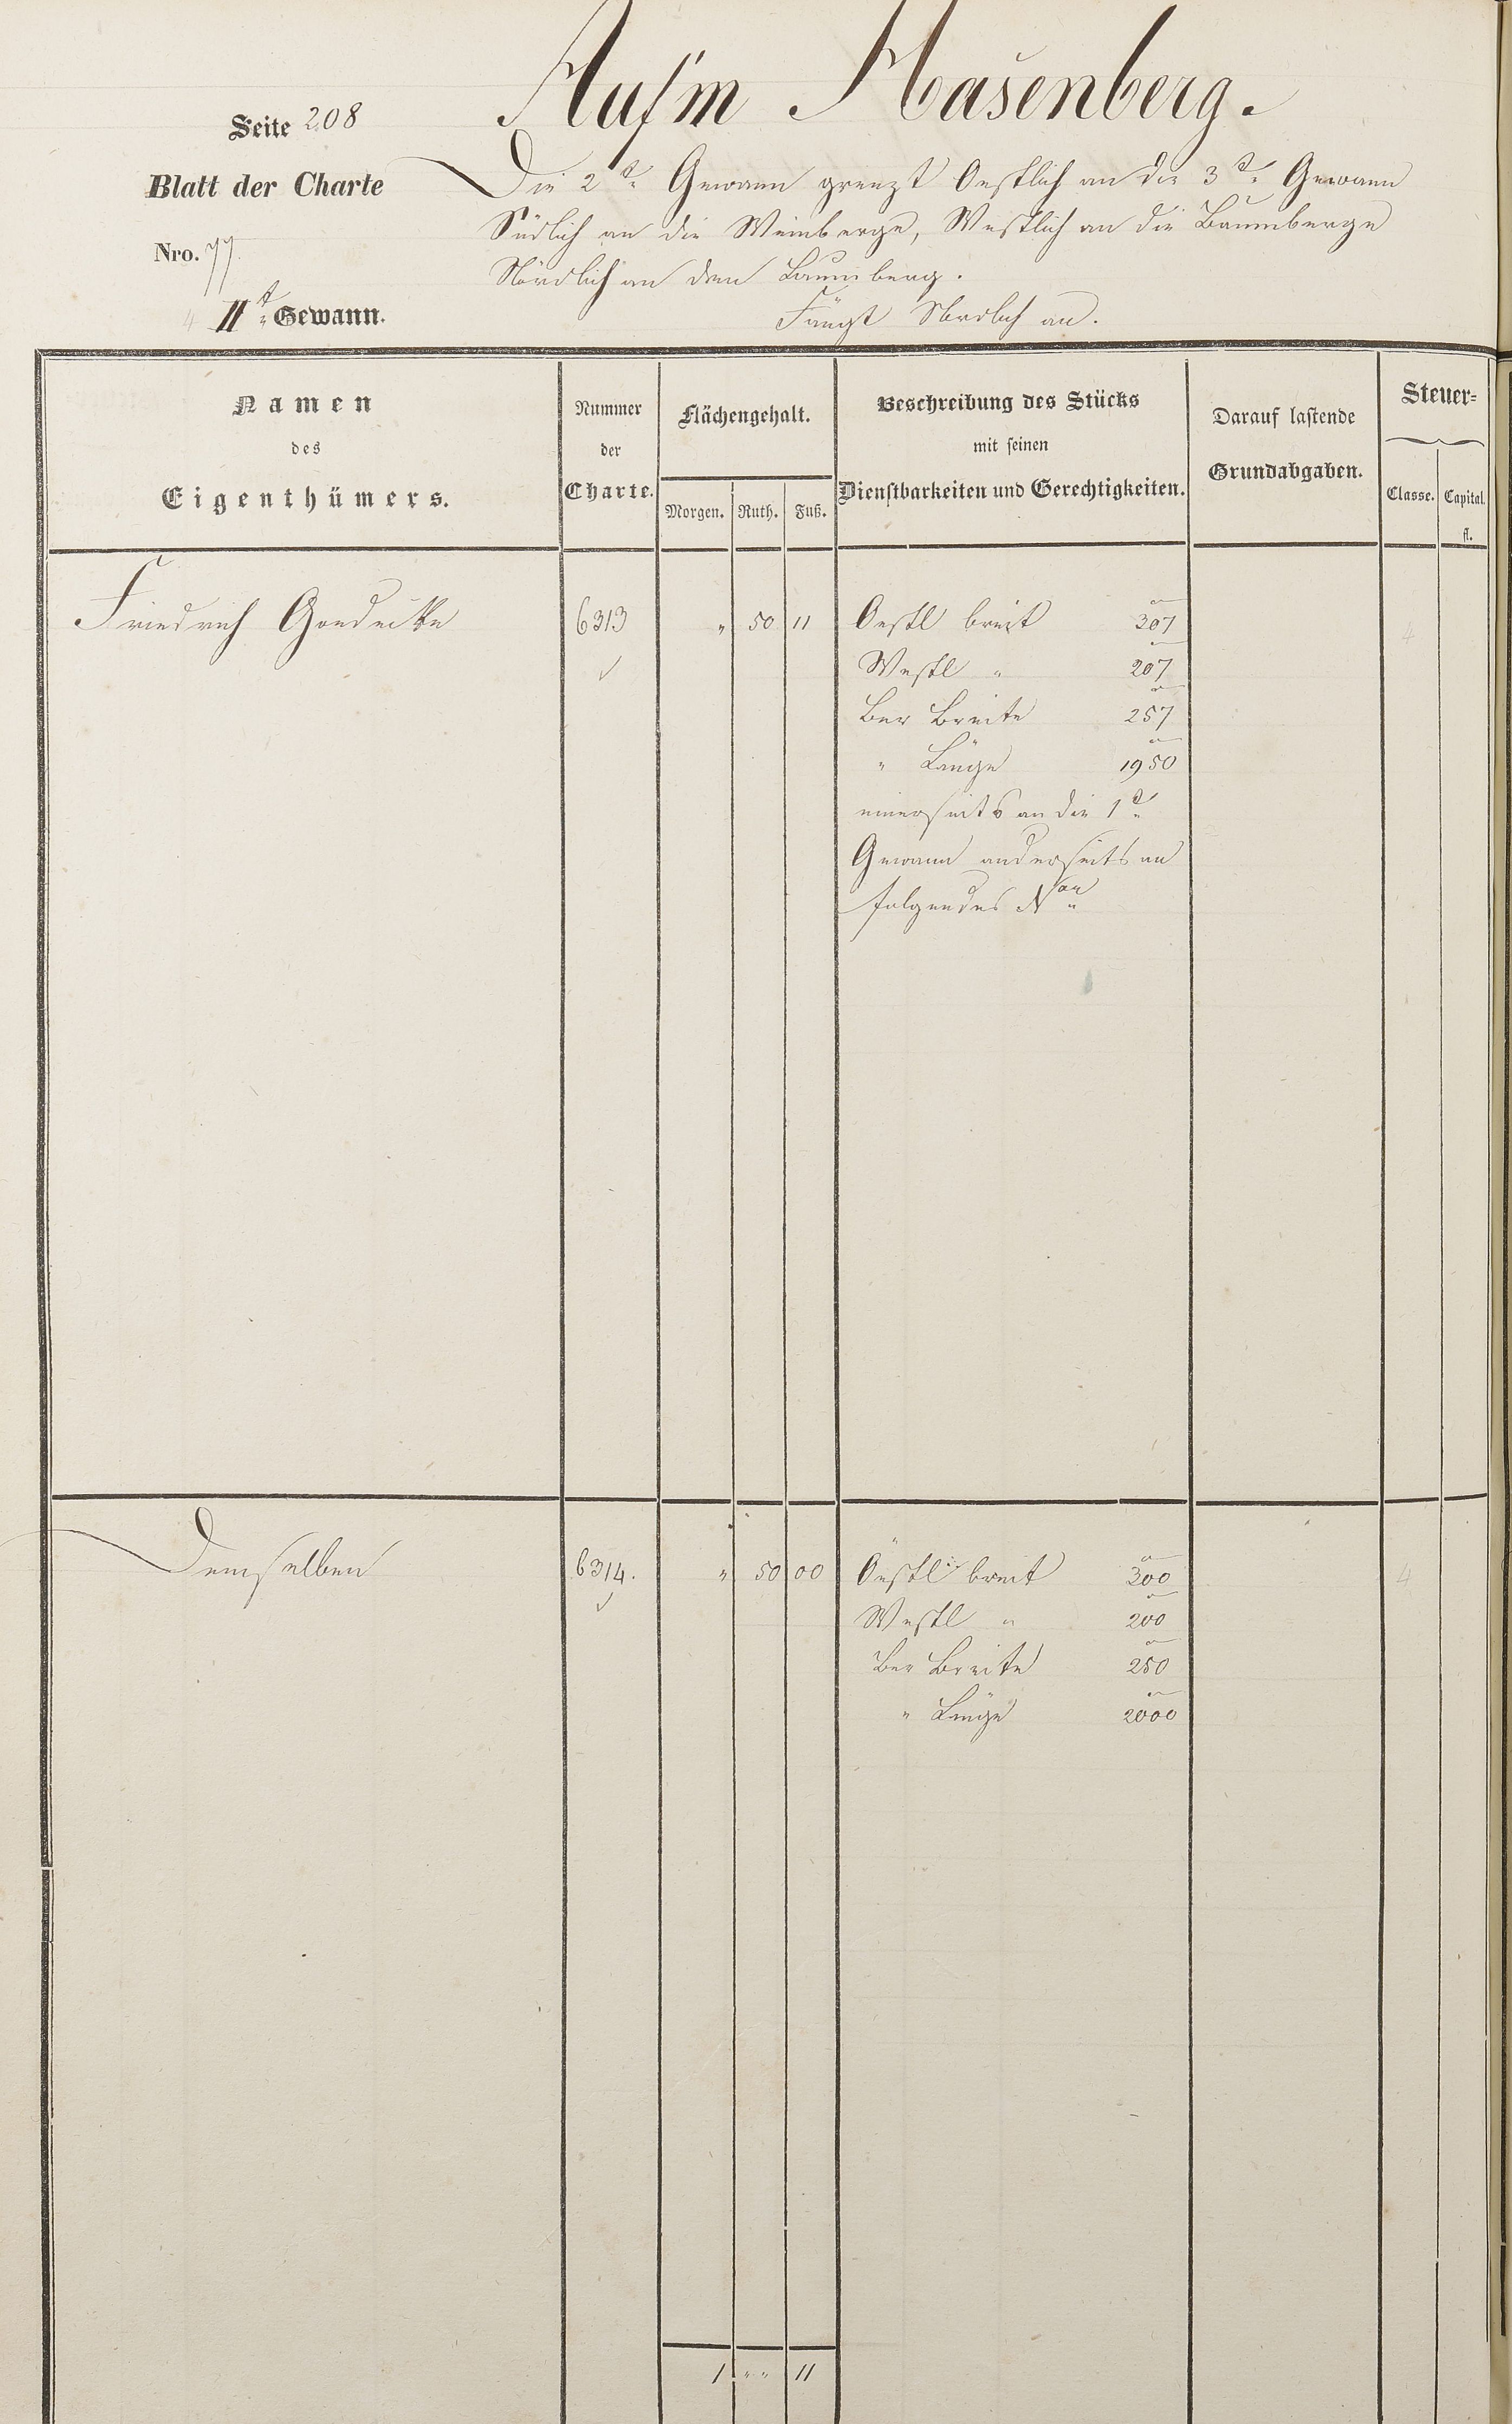 Auf'm Hasenberg.
Seite 208
Blatt der Charte
Nro. 77.
II.t Gewann.
Die 2.te Gewann grenzt Oestlich an die 3.te Gewann
Südlich an die Weinberge, Westlich an die Baumberge
Nördlich an den Baumberg.
Fängt Nördlich an.
Namen
des
Eigenthümers.
Nummer
der
Charte.
Flächengehalt.
Morgen. Ruth. Fuß.
Beschreibung des Stücks
mit seinen
Dienstbarkeiten und Gerechtigkeiten.
Darauf lastende
Grundabgaben.
Steuer-
Classe. Capital.
fl.
Friedrich Goedecke 6313 " 50 11 Oestl breit 307 4
Westl " 207
Ber Breite 257
" Länge 1950
einerseits an die 1te
Gewann anderseits an
folgendes Nro
Demselben 6314. " 50 00 Oestl breit 300 4
Westl " 200
Ber Breite 250
" Länge 2000
1 " " 11